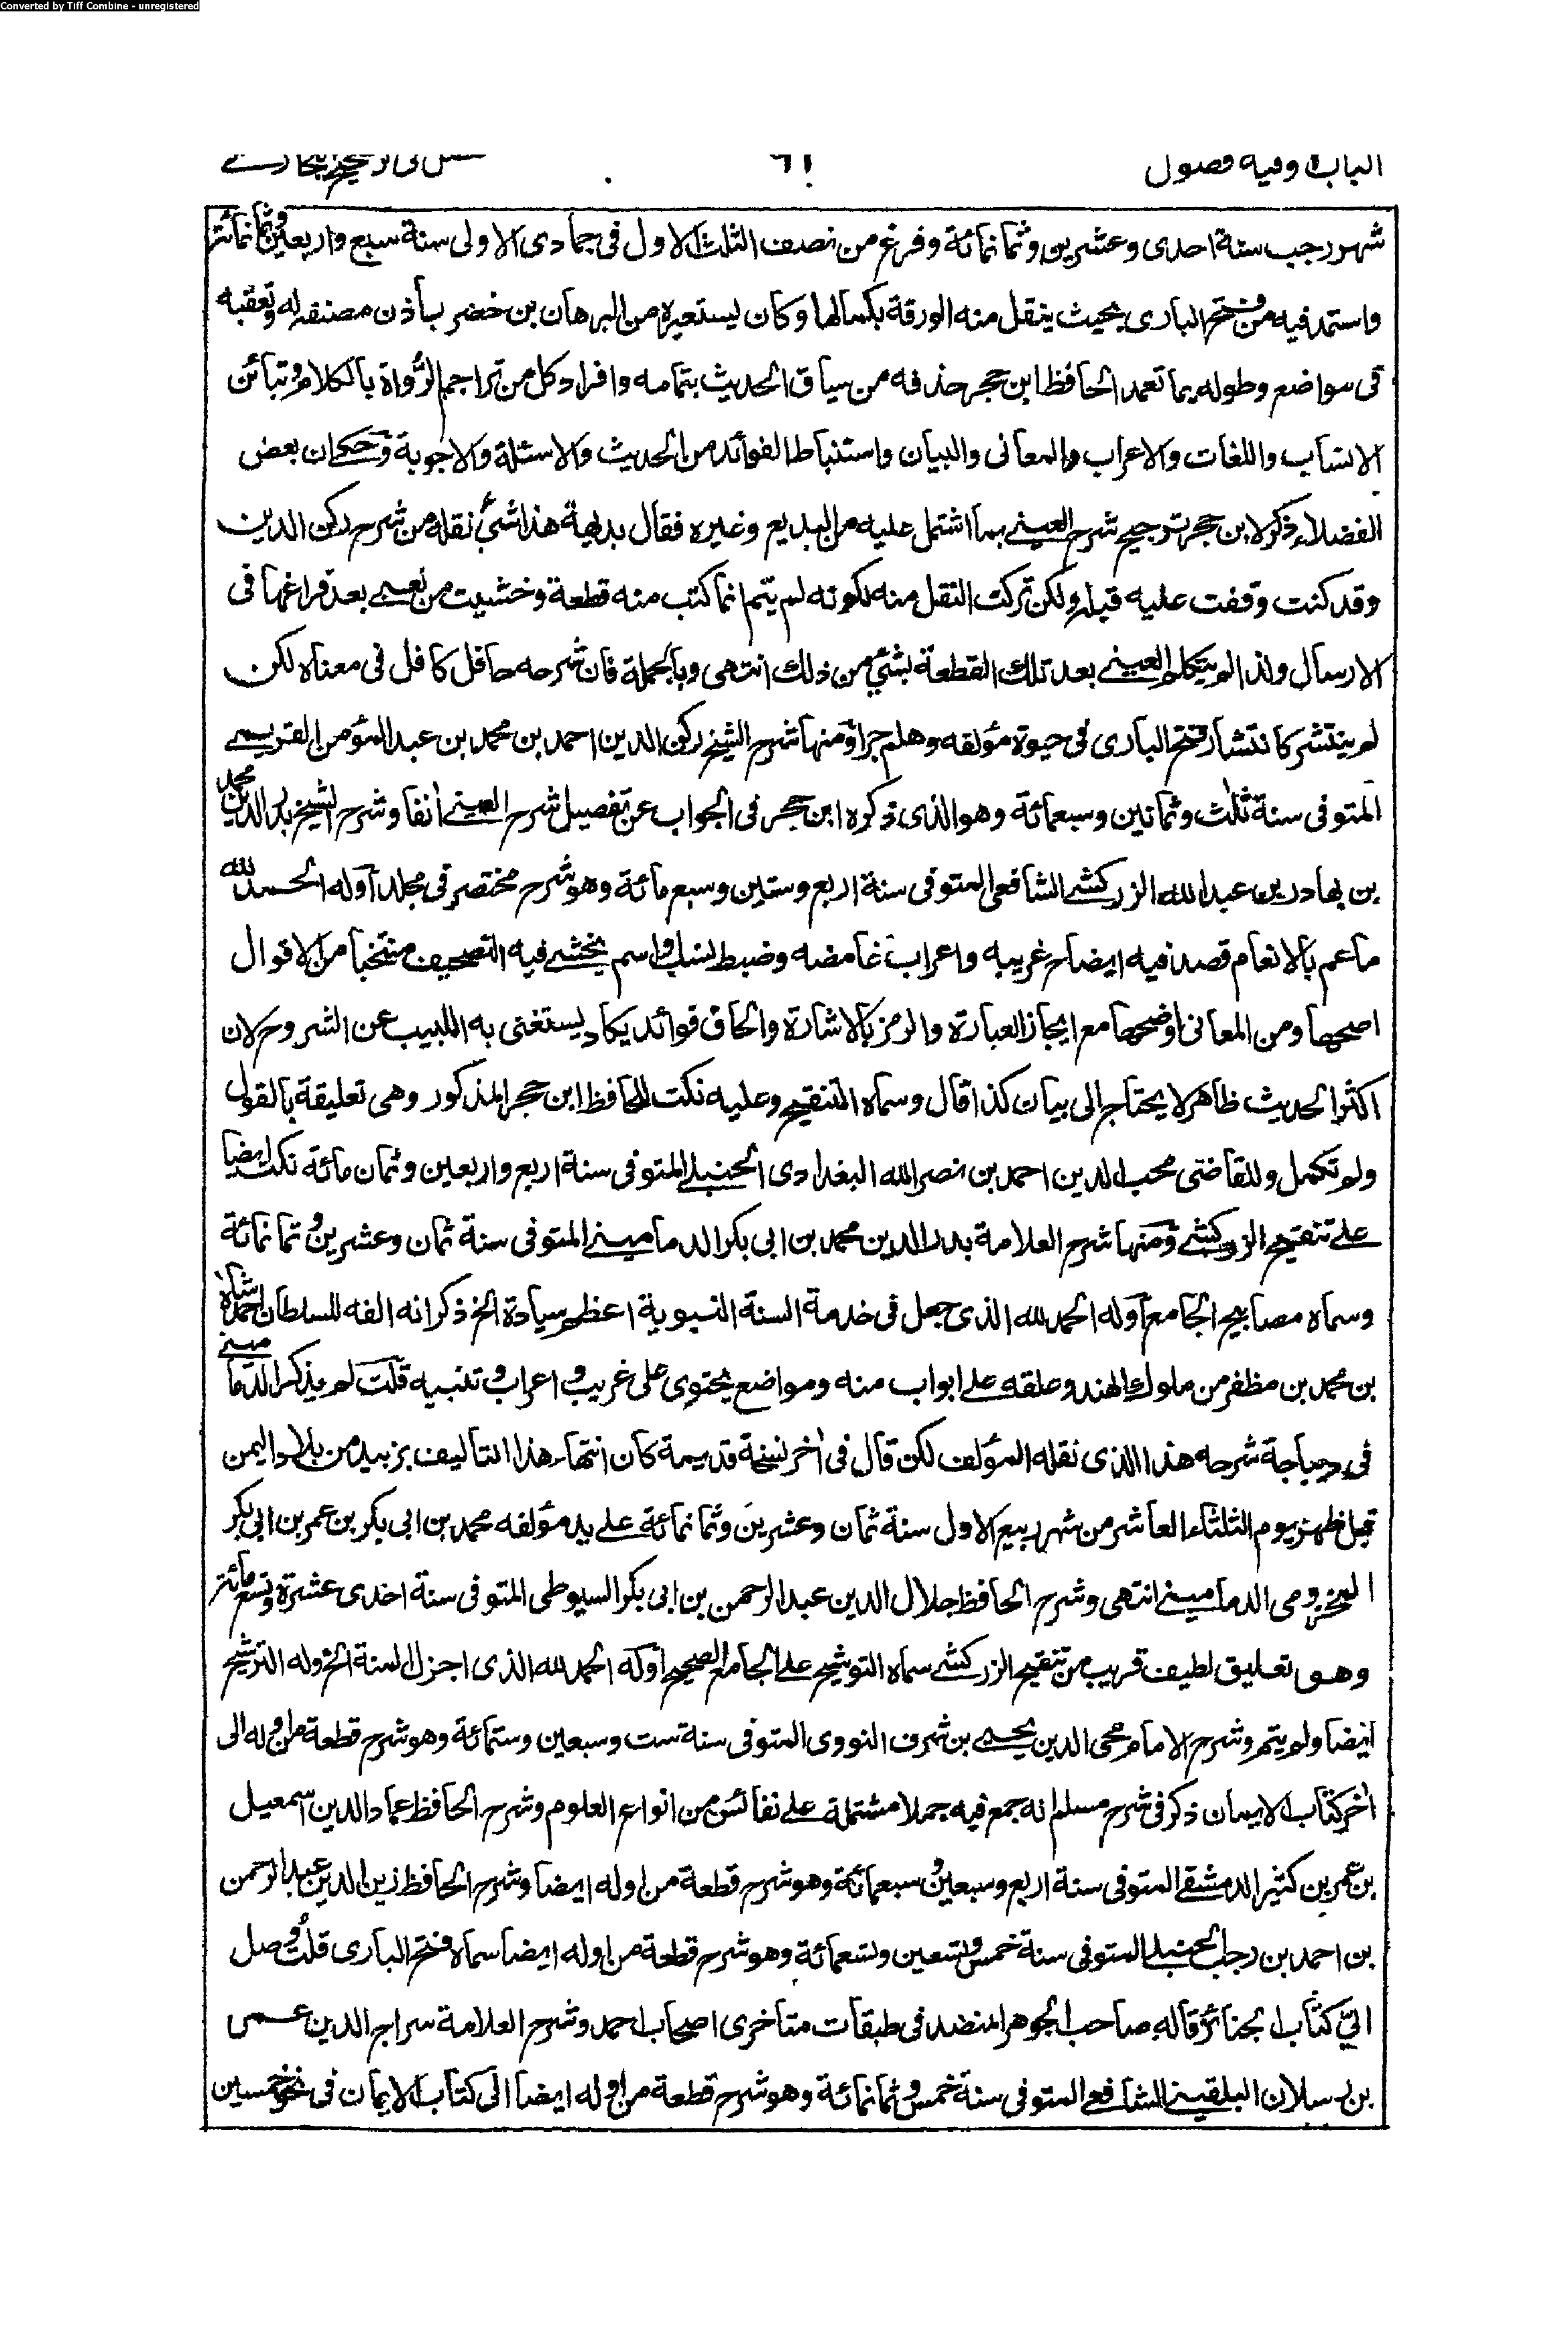 Converted by Tiff Combine - unregistered
الباب ١ وفيه فصول
شهر رجب سنة احدى وعشرين وثمانمائة وفرغ من نصف الثلث الاول فى جمادى الاولى سنة سبع واربعين وثمانمائة
واستمد فيه من فتح البارى بحيث ينقل منه الورقة بكمالها وكان يستعيره من البرهان بن خضر بأذن مصنفه له وتعقبه
فى مواضع وطوله بما تعمد الحافظ ابن حجر حذفه من سياق الحديث بتمامه وافراد كل من تراجم الرواة بالكلام وتبائن
الانساب واللغات والاعراب والمعانى والبيان واستنباط الفوائد من الحديث والاسئلة والاجوبة وحكى ان بعض
الفضلاء ذكر لابن حجر ترجيح شرح العينى بما اشتمل عليه من البديع وغيره فقال بديهة هذا شئ نقله من شرح ركن الدين
وقد كنت وقفت عليه قبله ولكن تركت النقل منه لكونه لم يتم انما كتب منه قطعة وخشيت من تعبى بعد فراغها فى
الارسال ولذا لم يتكلم العينى بعد تلك القطعة بشئ من ذلك انتهى وبالجملة فان شرحه حافل كافل فى معناه لكن
لم ينتشر كانتشار فتح البارى فى حيوة مؤلفه وهلم جرا ومنها شرح الشيخ ركن الدين احمد بن محمد بن عبد المؤمن القريمى
المتوفى سنة ثلث وثمانين وسبعمائة وهو الذى ذكره ابن حجر فى الجواب عن تفضيل شرح العينى أنفا وشرح الشيخ بدر الدين محمد
بن بهادر بن عبد الله الزركشى الشافعى المتوفى سنة اربع وستين وسبع مائة وهو شرح مختصر فى مجلد اوله الحمد لله
ما عم بالانعام قصد فيه ايضاح غريبه واعراب غامضه وضبط نسب او اسم يخشى فيه التصحيف منتخبا من الاقوال
اصحها ومن المعانى اوضحها مع ايجاز العبارة والرمز بالاشارة والحاق فوائد يكاد يستغنى به اللبيب عن الشروح لان
اكثر الحديث ظاهر لا يحتاج الى بيان كذا قال وسماه التنقيح وعليه نكت للحافظ ابن حجر المذكور وهى تعليقة بالقول
ولم تكمل وللقاضى محب الدين احمد بن نصر الله البغدادى الحنبلى المتوفى سنة اربع واربعين وثمان مائة نكت ايضا
على تنقيح الزركشى ومنها شرح العلامة بدر الدين محمد بن ابى بكر الدمامينى المتوفى سنة ثمان وعشرين وثمانمائة
وسماه مصابيح الجامع اوله الحمد لله الذى جعل فى خدمة السنة النبوية اعظم سيادة الخ ذكر انه الفه للسلطان احمد شاه
بن محمد بن مظفر من ملوك الهند وعلقه على ابواب منه ومواضع يحتوى على غريب و اعراب و تنبيه قلت لم يذكر الدمامينى
فى ديباجة شرحه هذا الذى نقله المؤلف لكن قال فى أخر نسخة قديمة كان انتهاء هذا التأليف بزبيد من بلاد اليمن
قبل ظهر يوم الثلثاء العاشر من شهر ربيع الاول سنة ثمان وعشرين وثمانمائة على يد مؤلفه محمد بن ابى بكر بن عمر بن ابى بكر
المخزومى الدمامينى انتهى وشرح الحافظ جلال الدين عبد الرحمن بن ابى بكر السيوطى المتوفى سنة احدى عشرة وتسع مائة
وهو تعليق لطيف قريب من تنقيح الزركشى سماه التوشيح على الجامع الصحيح اوله الحمد لله الذى اجزل المنة الخ وله الترشيح
ايضا ولم يتم وشرح الامام محى الدين يحيى بن شرف النووى المتوفى سنة ست وسبعين وستمائة وهو شرح قطعة من اوله الى
أخر كتاب الايمان ذكر فى شرح مسلم انه جمع فيه جملا مشتملة على نفائس من انواع العلوم وشرح الحافظ عماد الدين اسمعيل
بن عمر بن كثير الدمشقى المتوفى سنة اربع وسبعين وسبعمائة وهو شرح قطعة من اوله ايضا وشرح الحافظ زين الدين عبد الرحمن
بن احمد بن رجب الحنبلى المتوفى سنة خمس وتسعين وتسعمائة وهو شرح قطعة من اوله ايضا سماه فتح البارى قلت وصل
الى كتاب الجنائز قاله صاحب الجوهر المنضد فى طبقات متأخرى اصحاب احمد وشرح العلامة سراج الدين عمر
بن رسلان البلقينى الشافعى المتوفى سنة خمس وثمانمائة وهو شرح قطعة من اوله ايضا الى كتاب الايمان فى نحو خمسين